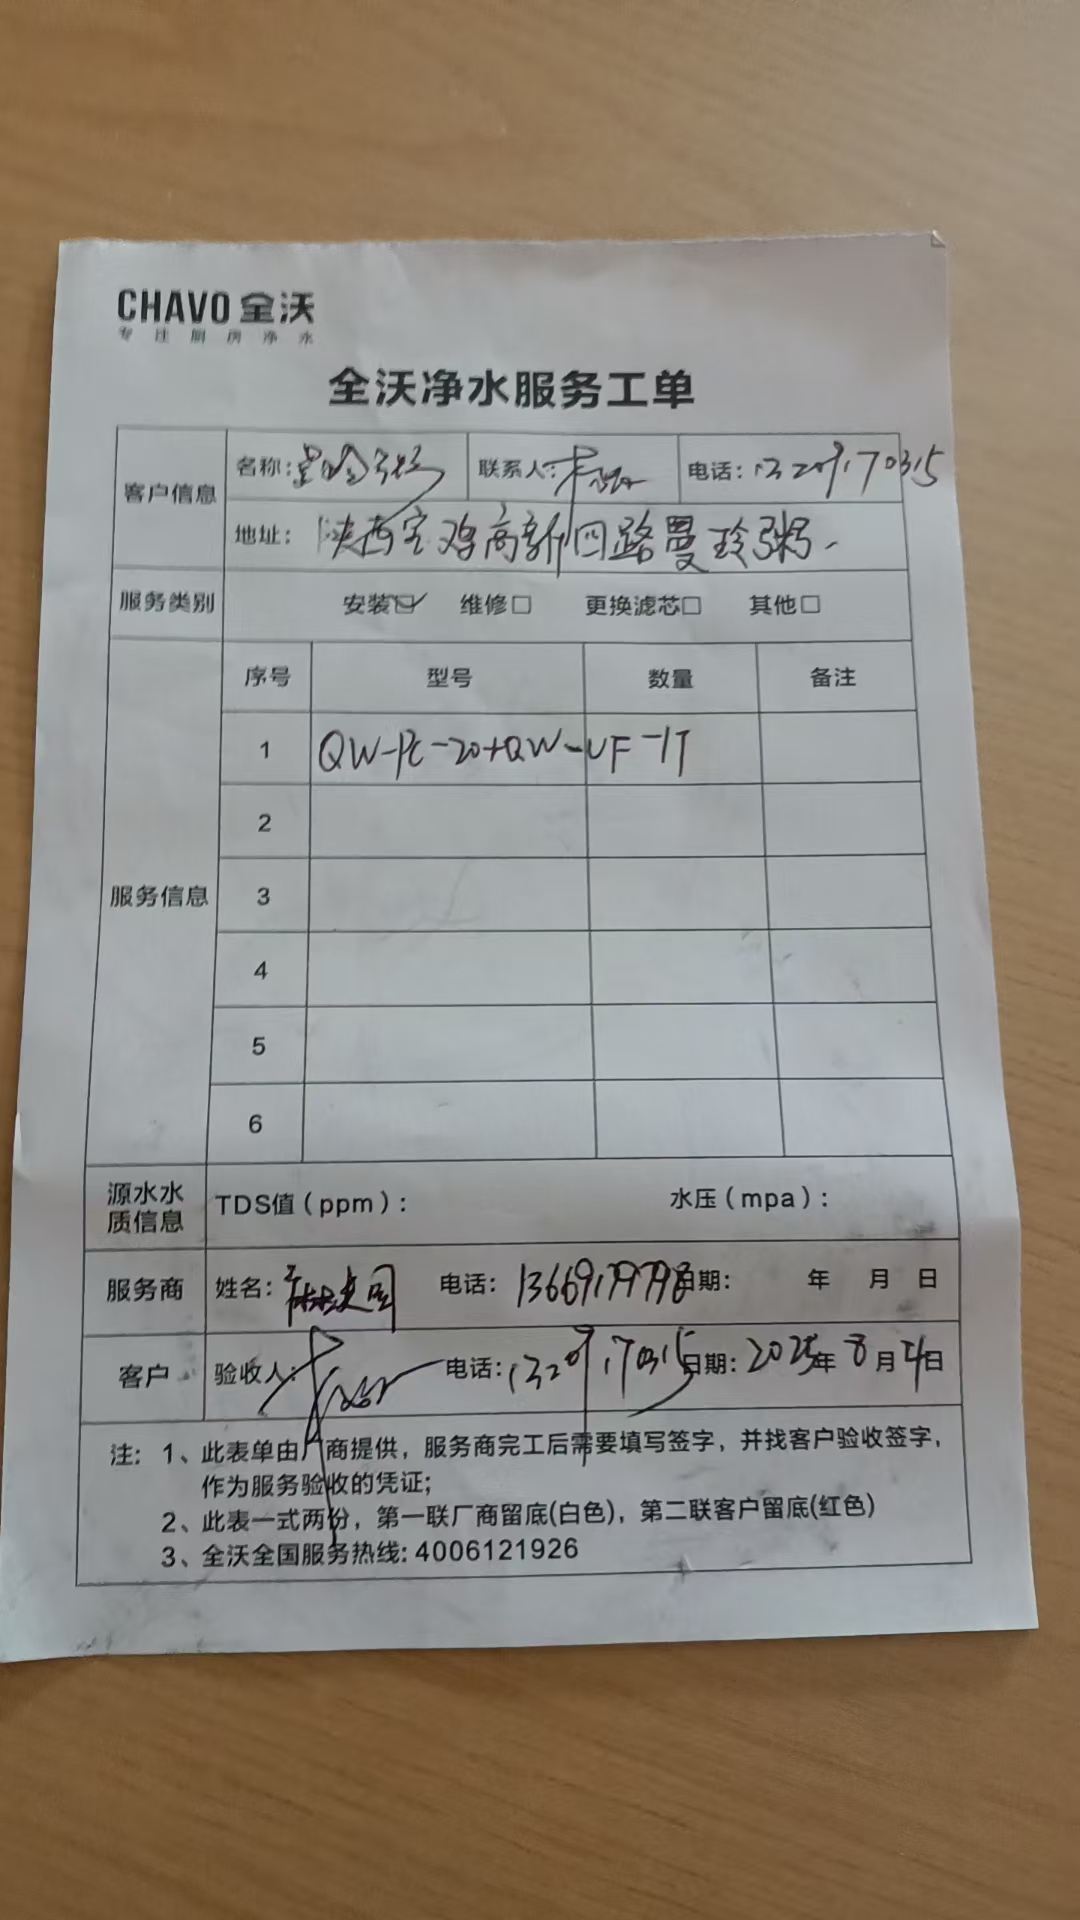 CHAVO 全沃
专注厨房净水
全沃净水服务工单
客户信息
名称: 联系人: 电话:13209170315
地址: 陕西宝鸡高新四路曼玲粥
服务类别 安装☑ 维修□ 更换滤芯□ 其他□
服务信息
序号 型号 数量 备注
1 QW-PC-20+QW-UF-1T
2
3
4
5
6
源水水质信息 TDS值(ppm): 水压(mpa):
服务商 姓名: 电话: 日期: 年 月 日
客户 验收人: 电话:13209170315 日期:2025年8月21日
注: 1、此表单由厂商提供,服务商完工后需要填写签字,并找客户验收签字,
作为服务验收的凭证;
2、此表一式两份,第一联厂商留底(白色),第二联客户留底(红色)
3、全沃全国服务热线:4006121926